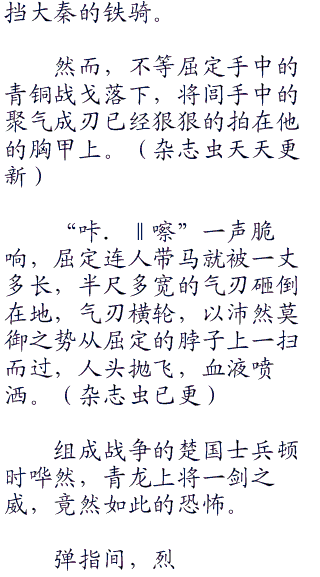 挡大秦的铁骑。
然而，不等屈定手中的
青铜战戈落下，将闾手中的
聚气成刃已经狠狠的拍在他
的胸甲上。（杂志虫天天更
新）
“咔．‖嚓”一声脆
响，屈定连人带马就被一丈
多长，半尺多宽的气刃砸倒
在地，气刃横轮，以沛然莫
御之势从屈定的脖子上一扫
而过，人头抛飞，血液喷
洒。（杂志虫已更）
组成战争的楚国士兵顿
时哗然，青龙上将一剑之
威，竟然如此的恐怖。
弹指间，烈